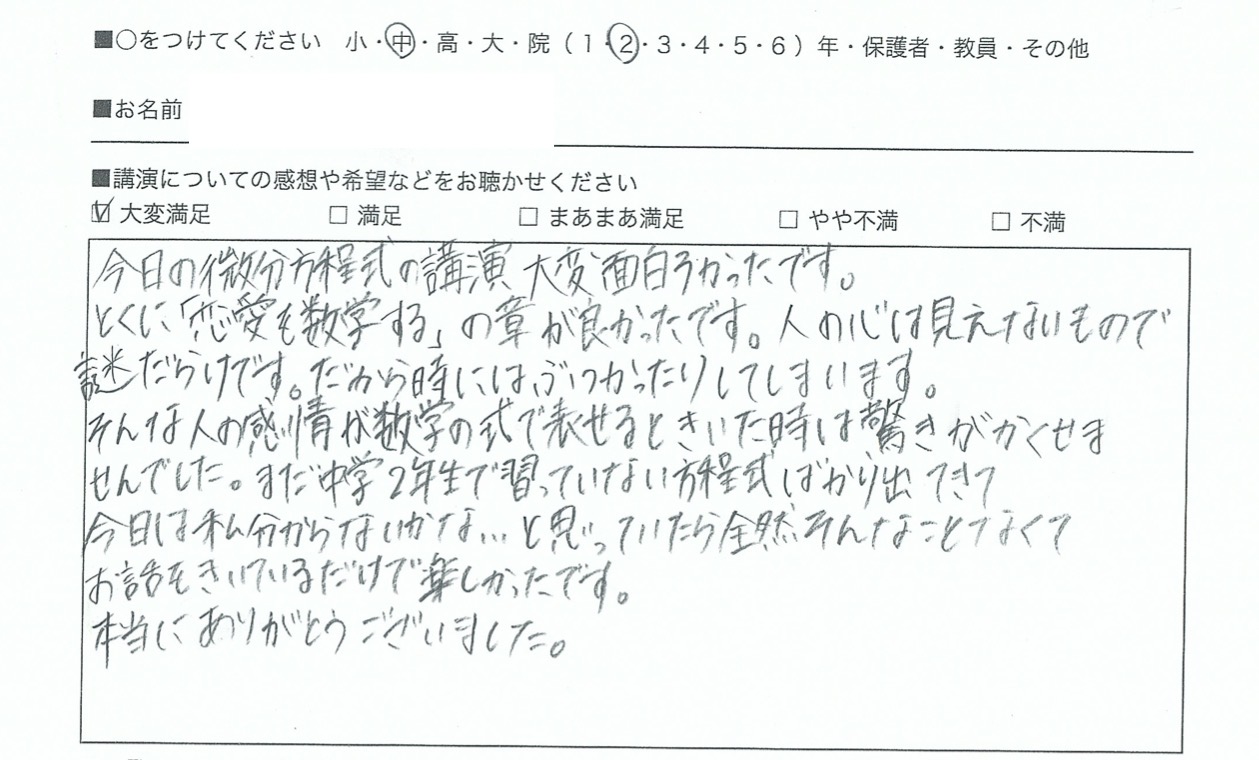 ■○をつけてください 小・中・高・大・院（1・2・3・4・5・6）年・保護者・教員・その他
■お名前
■講演についての感想や希望などをお聴かせください
☑ 大変満足 □ 満足 □ まあまあ満足 □ やや不満 □ 不満
今日の微分方程式の講演 大変面白ろかったです。
とくに「恋愛を数学する」の章が良かったです。人の心は見えないもので
謎だらけです。だから時にはぶつかったりしてしまいます。
そんな人の感情が数学の式で表せるときいた時は驚きがかくせま
せんでした。まだ中学2年生で習っていない方程式ばかり出てきて
今日は私分からないかな…と思っていたら全然そんなことなくて
お話をきいているだけで楽しかったです。
本当にありがとうございました。